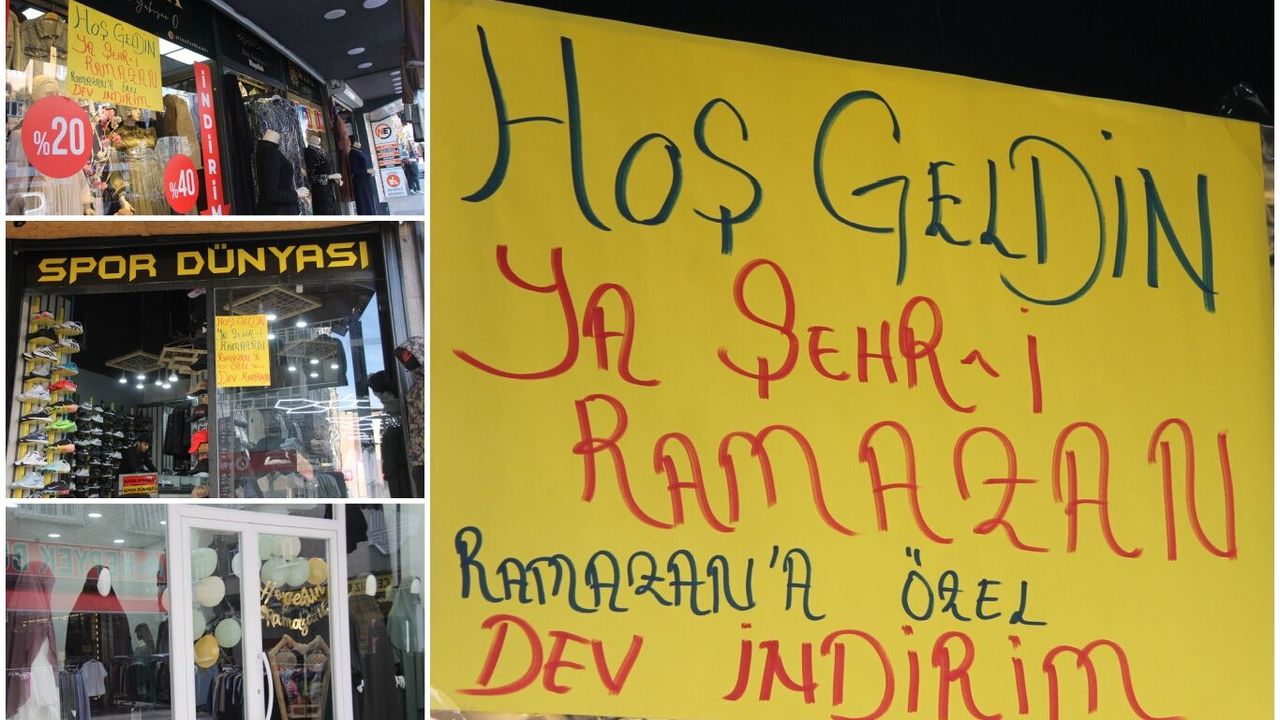 HOŞ GELDİN
YA ŞEHR-İ
RAMAZAN
RAMAZAN'A ÖZEL
DEV İNDİRİM
%20
%40
İNDİRİM
SPOR DÜNYASI
HOŞ GELDİN
YA ŞEHR-İ
RAMAZAN
RAMAZAN'A
ÖZEL
SPOR DÜNYASI
HOŞ GELDİN
YA ŞEHR-İ
RAMAZAN
RAMAZAN'A ÖZEL
DEV İNDİRİM